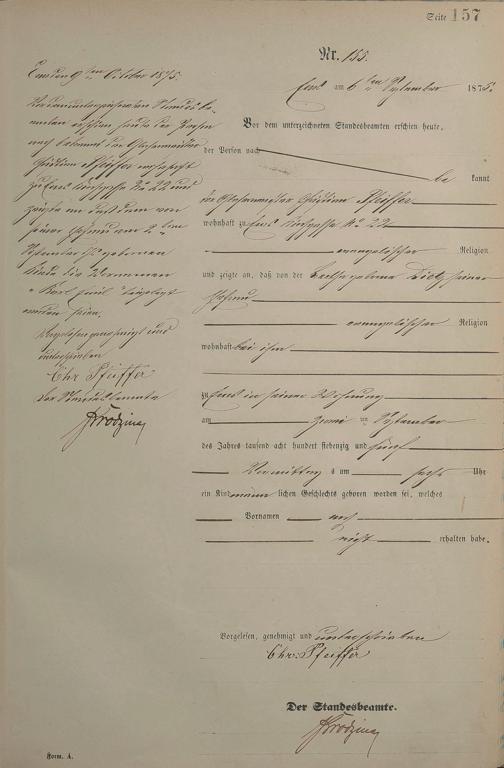 Seite 157
Nr. 155.
Ems den 9ten October 1875.
Vor dem unterzeichneten Standesbe-
amten erschien heute der Person
nach bekannt der Glasermeister
Christian Pfeiffer wohnhaft
zu Ems No 22 und
zeigte an daß dem von
seiner Ehefrau am 2ten
September geborenen
Kinde die Vornamen
"Karl Emil" beigelegt
worden seien.
Vorgelesen genehmigt und
unterschrieben
Chr Pfeiffer
Der Standesbeamte
Ems am 6ten September 1875.
Vor dem unterzeichneten Standesbeamten erschien heute,
der Person nach
be kannt
der Glasermeister Christian Pfeiffer
wohnhaft zu Ems No 22
evangelischer Religion
und zeigte an, daß von der geborene Dietz seiner
Ehefrau
evangelischer Religion
wohnhaft bei ihm
zu Ems in seiner Wohnung
am zwei ten September
des Jahres tausend acht hundert siebenzig und fünf
Vormittag s um sechs Uhr
ein Kind männ lichen Geschlechts geboren worden sei, welches
Vornamen noch
nicht erhalten habe.
Vorgelesen, genehmigt und unterschrieben
Chr. Pfeiffer
Der Standesbeamte.
Form. A.